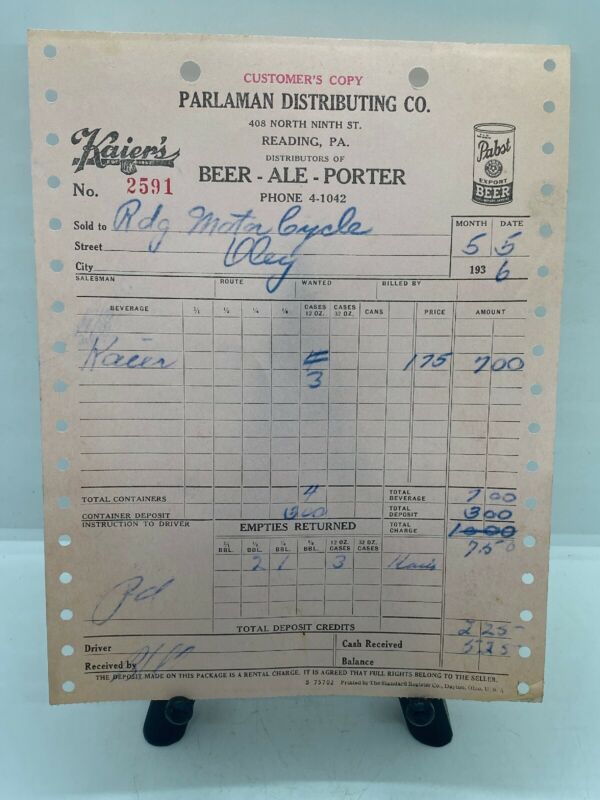 CUSTOMER'S COPY
PARLAMAN DISTRIBUTING CO.
408 NORTH NINTH ST.
READING, PA.
DISTRIBUTORS OF
BEER - ALE - PORTER
PHONE 4-1042
Kaier's
Pabst
EXPORT
BEER
No. 2591
Sold to Rdg Motor Cycle
Street
City Oley
MONTH DATE
5 5
193 6
SALESMAN ROUTE WANTED BILLED BY
BEVERAGE 1/1 1/2 1/4 1/8 CASES 12 OZ. CASES 32 OZ. CANS PRICE AMOUNT
Kaier 4 1 75 7 00
3
TOTAL CONTAINERS 4 TOTAL BEVERAGE 7 00
CONTAINER DEPOSIT 3 00 TOTAL DEPOSIT 3 00
INSTRUCTION TO DRIVER EMPTIES RETURNED TOTAL CHARGE 10 00
7.50
1/1 BBL. 1/2 BBL. 1/4 BBL. 1/8 BBL. 12 OZ. CASES 32 OZ. CASES
2 1 3
Pd
TOTAL DEPOSIT CREDITS 2 25
Driver Cash Received 5 25
Received by Balance
THE DEPOSIT MADE ON THIS PACKAGE IS A RENTAL CHARGE. IT IS AGREED THAT FULL RIGHTS BELONG TO THE SELLER.
S 75702 Printed by The Standard Register Co., Dayton, Ohio, U. S. A.